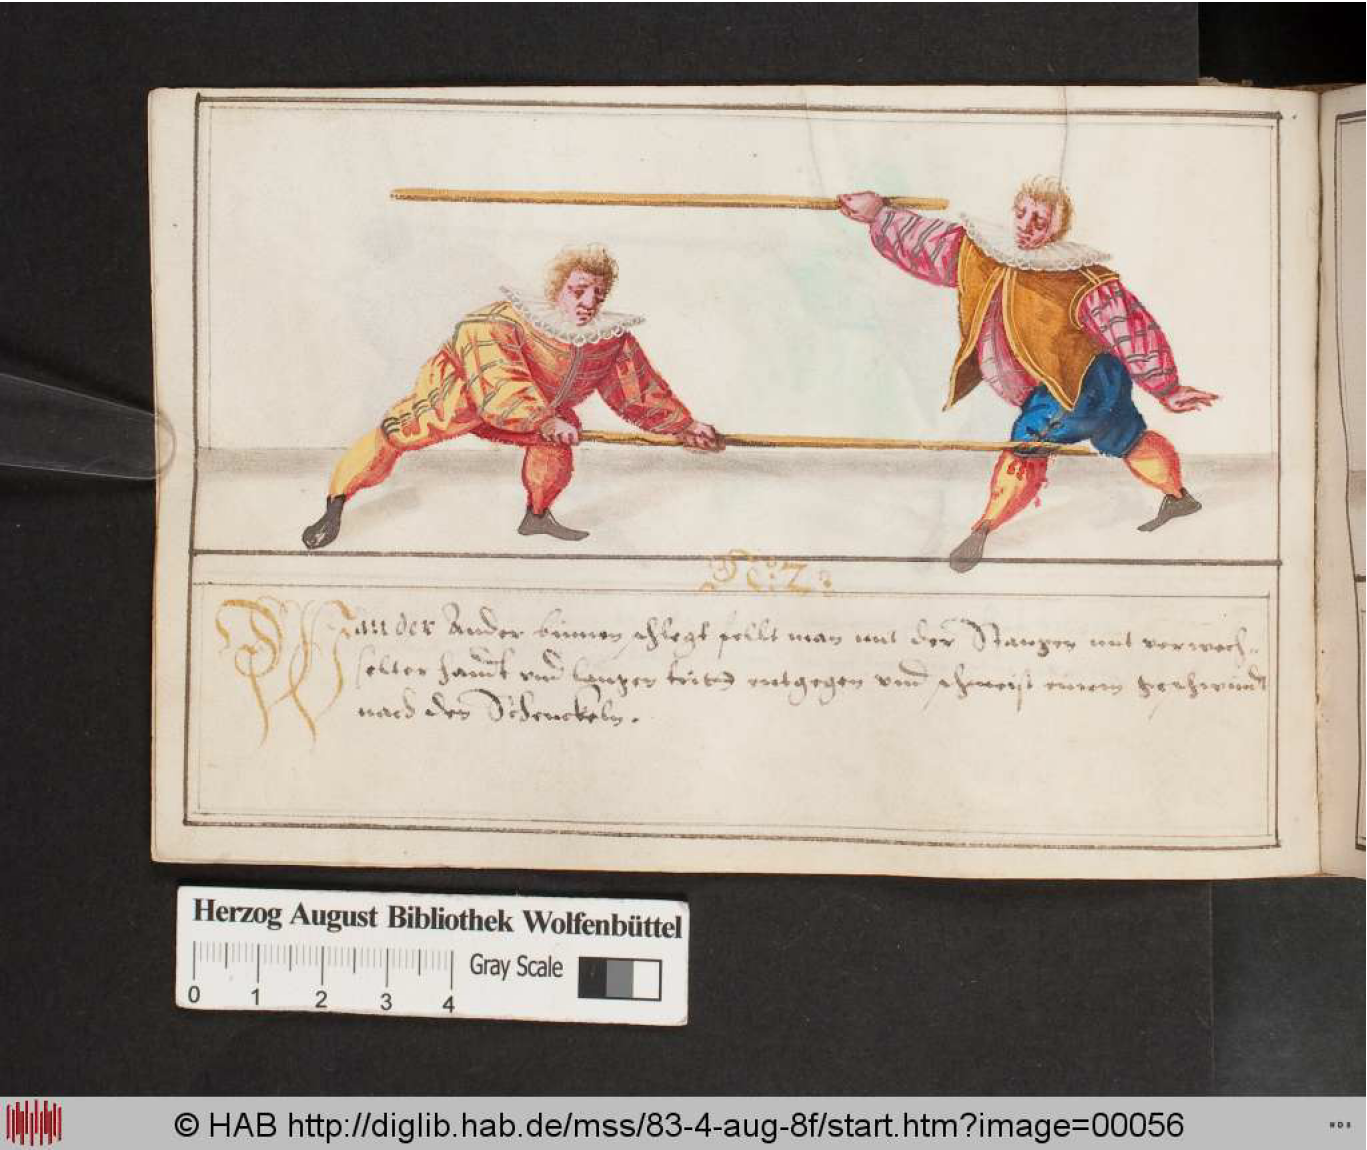 Wan der Ander binnen schlegt fellt man mit der Stangen mit verwech-
selter handt und langen tritt entgegen und schmeist einem geschwindt
nach den Schenckeln.
Herzog August Bibliothek Wolfenbüttel
Gray Scale
0 1 2 3 4
© HAB http://diglib.hab.de/mss/83-4-aug-8f/start.htm?image=00056